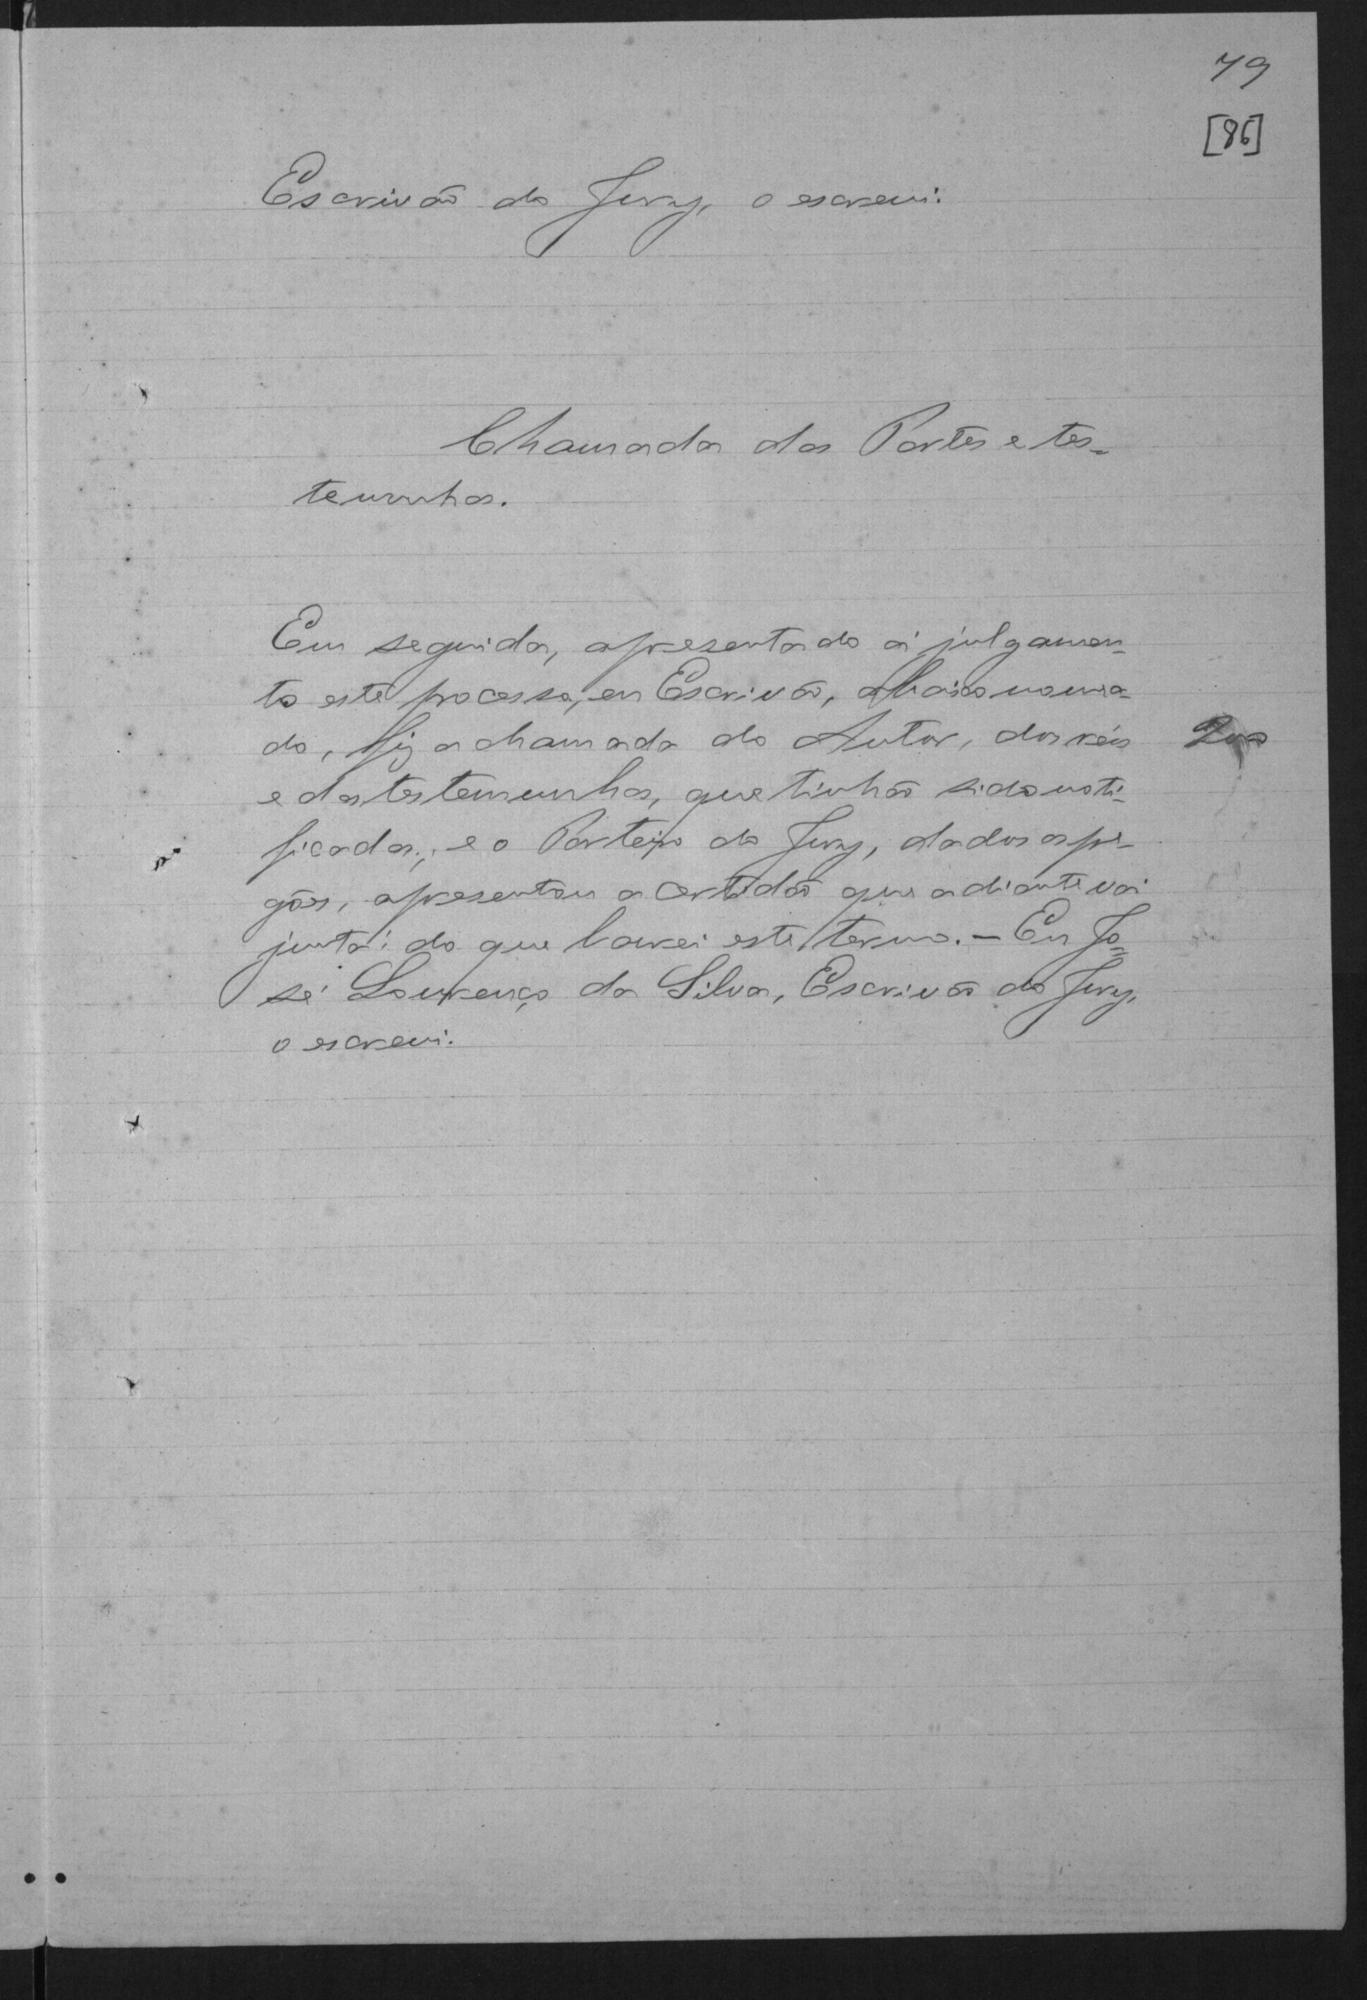 79
[86]
Escrivão do Jury, o escrevi.
Chamada das Partes e tes-
temunhas.
Em seguida, apresentado á julgamen-
to este processo, eu Escrivão, abaixo nomea-
do, fiz a chamada do Autor, dos réos
e das testemunhas, que tinhão sido noti-
ficadas; e o Porteiro do Jury, dados os pre-
gões, apresentou a certidão que adiante vai
junta: do que lavrei este termo. — Eu Jo-
sé Lourenço da Silva, Escrivão do Jury,
o escrevi.